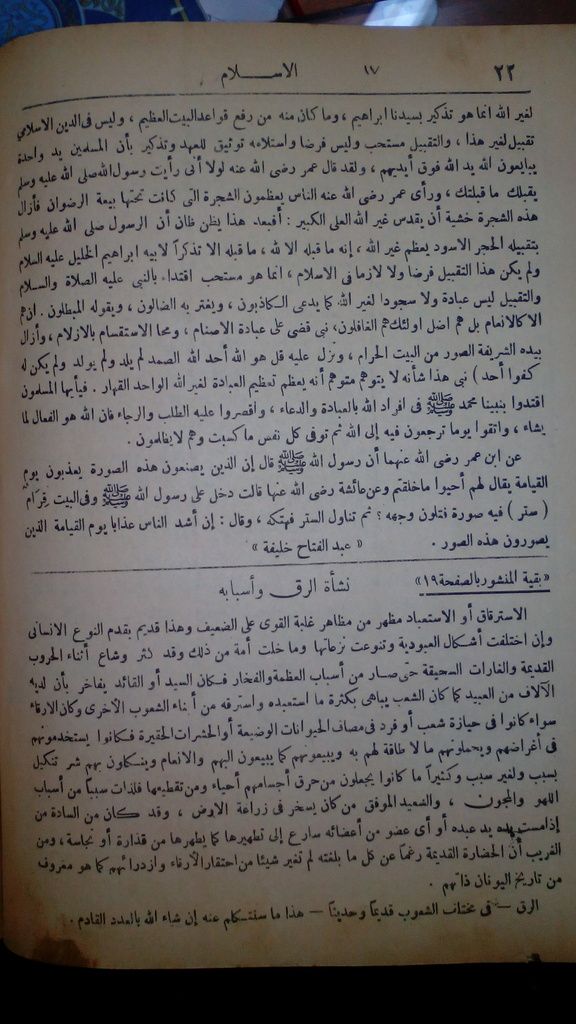 ٢٢ ١٧ الاســـلام
لغير الله انما هو تذكير بسيدنا ابراهيم ، وما كان منه من رفع قواعد البيت العظيم ، وليس فى الدين الاسلامي
تقبيل لغير هذا ، والتقبيل مستحب وليس فرضا واستلامه توثيق للعهد وتذكير بأن المسلمين يد واحدة
يبايعون الله يد الله فوق أيديهم ، ولقد قال عمر رضى الله عنه لولا أنى رأيت رسول الله صلى الله عليه وسلم
يقبلك ما قبلتك ، ورأى عمر رضى الله عنه الناس يعظمون الشجرة التى كانت تحتها بيعة الرضوان فأزال
هذه الشجرة خشية أن يقدس غير الله العلى الكبير : أفبعد هذا يظن ظان أن الرسول صلى الله عليه وسلم
بتقبيله الحجر الاسود يعظم غير الله ، إنه ما قبله الا لله ، ما قبله الا تذكراً لابيه ابراهيم الخليل عليه السلام
ولم يكن هذا التقبيل فرضا ولا لازما فى الاسلام ، انما هو مستحب اقتداء بالنبى عليه الصلاة والسلام
والتقبيل ليس عبادة ولا سجودا لغير الله كما يدعى الكاذبون ، ويفتر به الضالون ، ويقوله المبطلون . ان هم
الا كالانعام بل هم اضل اولئك هم الغافلون، نبى قضى على عبادة الاصنام ، ومحا الاستقسام بالازلام ، وأزال
بيده الشريفة الصور من البيت الحرام ، ونزل عليه قل هو الله أحد الله الصمد لم يلد ولم يولد ولم يكن له
كفوا أحد ) نبى هذا شأنه لا يتوهم متوهم أنه يعظم تعظيم العبادة لغير الله الواحد القهار . فيأيها المسلمون
اقتدوا بنبينا محمد ﷺ فى افراد الله بالعبادة والدعاء ، واقصروا عليه الطلب والرجاء فان الله هو الفعال لما
يشاء ، واتقوا يوما ترجعون فيه إلى الله ثم توفى كل نفس ما كسبت وهم لا يظلمون .
عن ابن عمر رضى الله عنهما أن رسول الله ﷺ قال إن الذين يصنعون هذه الصورة يعذبون يوم
القيامة يقال لهم أحيوا ماخلقتم وعن عائشة رضى الله عنها قالت دخل على رسول الله ﷺ وفى البيت قِرَام
( ستر ) فيه صورة فتلون وجهه ؟ ثم تناول الستر فهتكه ، وقال : إن أشد الناس عذابا يوم القيامة الذين
يصورون هذه الصور . « عبد الفتاح خليفة »
« بقية المنشور بالصفحة ١٩ » نشأة الرق وأسبابه
الاسترقاق أو الاستعباد مظهر من مظاهر غلبة القوى على الضعيف وهذا قديم بقدم النوع الانسانى
وإن اختلفت أشكال العبودية وتنوعت نزعاتها وما خلت أمة من ذلك وقد كثر وشاع أثناء الحروب
القديمة والغارات السحيقة حتى صار من أسباب العظمة والفخار فكان السيد أو القائد يفاخر بأن لديه
الآلاف من العبيد كما كان الشعب يباهى بكثرة ما استعبده واسترقه من أبناء الشعوب الأخرى وكان الارقاء
سواء كانوا فى حيازة شعب أو فرد فى مصاف الحيوانات الوضيعة أو الحشرات الحقيرة فكانوا يستخدمونهم
فى أغراضهم ويحملونهم ما لا طاقة لهم به ويبيعونهم كما يبيعون البهم والانعام وينكلون بهم شر تنكيل
بسبب ولغير سبب وكثيراً ما كانوا يجعلون من حرق أجسامهم أحياء ومن تقطيعها فلذات سبباً من أسباب
اللهو والمجون ، والسعيد الموفق من كان يسخر فى زراعة الارض ، وقد كان من السادة من
إذا مست يده يد عبده أو أى عضو من أعضائه سارع إلى تطهيرها كما يطهرها من قذارة أو نجاسة ، ومن
الغريب أن الحضارة القديمة رغماً عن كل ما بلغته لم تغير شيئا من احتقار الأرقاء وازدرائهم كما هو معروف
من تاريخ اليونان ذاتهم .
الرق — فى مختلف الشعوب قديماً وحديثاً — هذا ما سنتكلم عنه إن شاء الله بالعدد القادم .